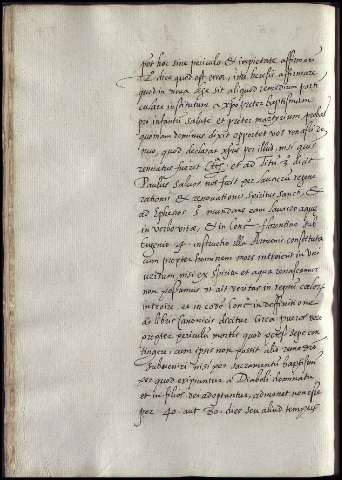 pōt hoc sine periculo et impietate affirmari
Et dico quod est error, imo heresis affirmare
quod in nova lege sit aliquod remedium parti
culare institutum a xpō preter baptismum
pro infantū salute et preter martyrium probat
quoniam dominus dixit oportet vos renasci de
nuo, quod declarat xpūs per illud, nisi quis
renatus fuerit et ad Titū 3 dicit
Paulus salvos nos fecit per lavacrū regene
rationis et renovationis spiritus sancti, et
ad Ephesios 5 mundans eam lavacro aque
in verbo vitæ, et in Conc. florentino sub
Eugenio 4 instructio illa Armenis constituta
cum propter hominem mors introierit in uni
versum, nisi ex spiritu et aqua renascamur
non possumus ut ait veritas in regnū cælorū
introire, et in eodē Conc. in deffinitione
de libris Canonicis dicitur Circa pueros vero
propter periculū mortis quod potest sepe con
tingere, cum ipsis non possit alio remedio
subveniri nisi per sacramentū baptismi
per quod eripiuntur a Diaboli dominatu
et in filios dei adoptantur, admonet non esse
per 40. aut 80. dies seu aliud tempus